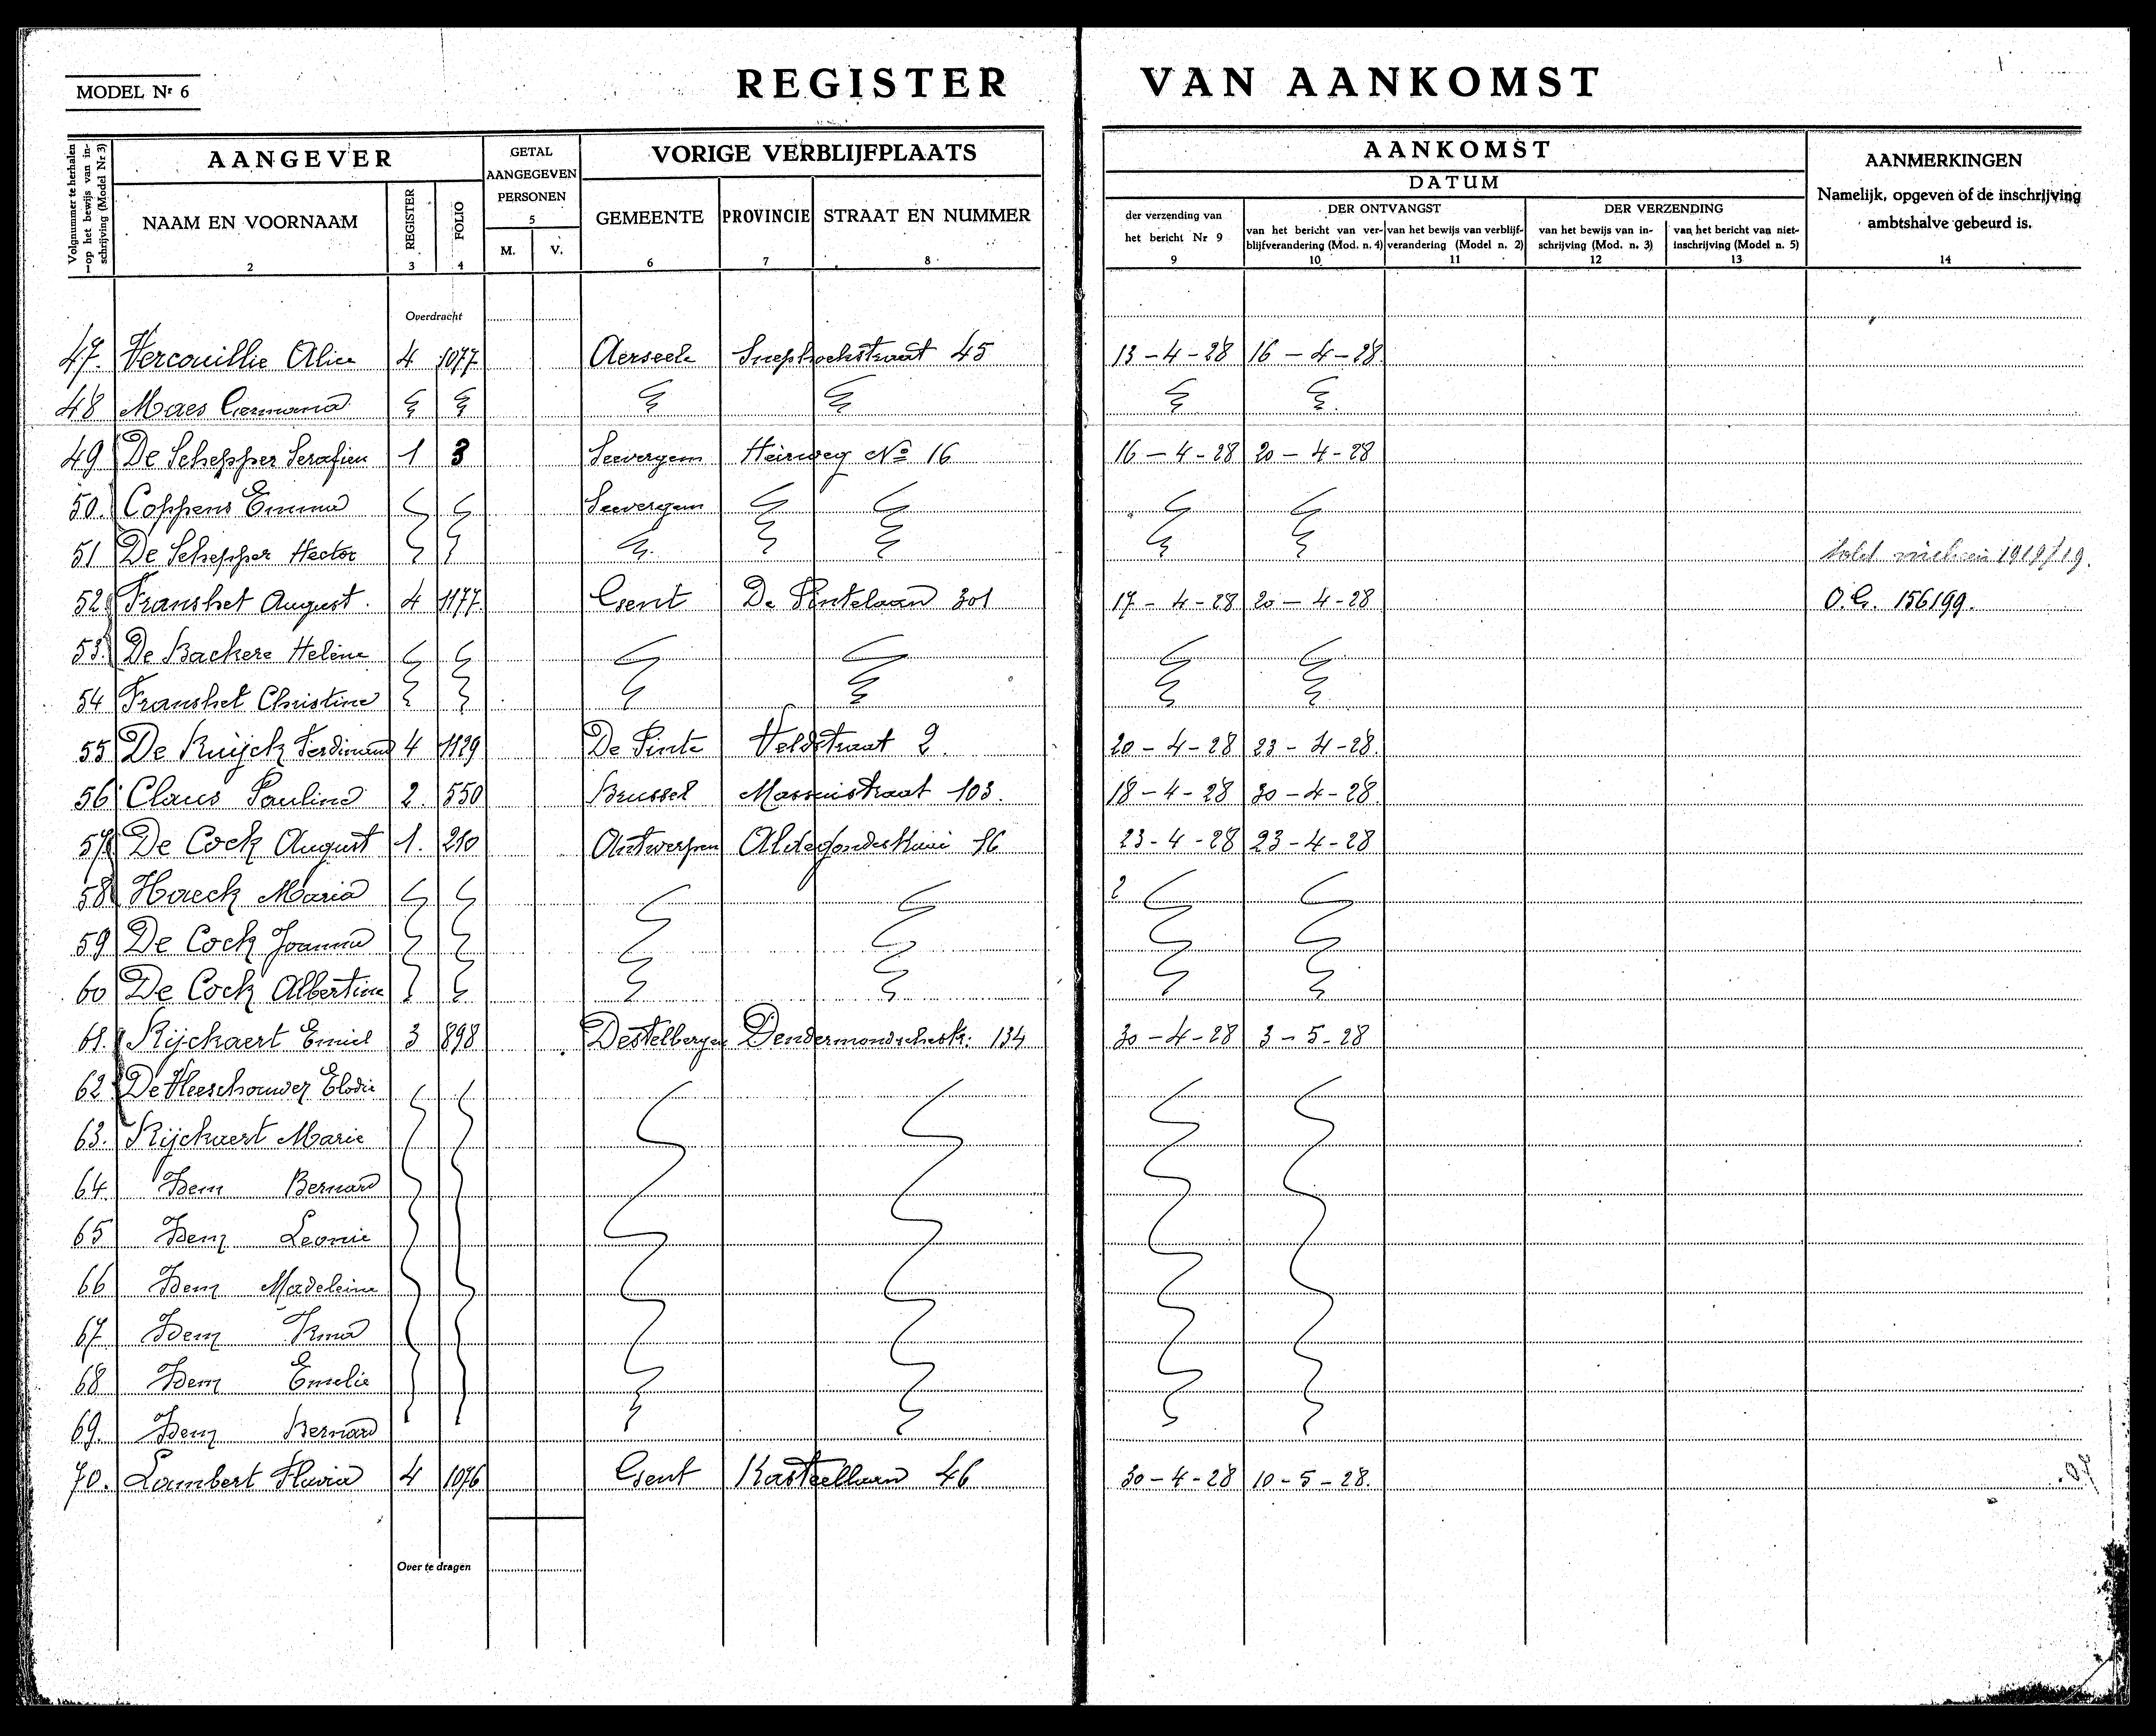 MODEL Nr 6
REGISTER VAN AANKOMST
Volgnummer te herhalen op het bewijs van inschrijving (Model Nr 3)
AANGEVER
GETAL AANGEGEVEN PERSONEN
VORIGE VERBLIJFPLAATS
AANKOMST
AANMERKINGEN
DATUM
Namelijk, opgeven of de inschrijving ambtshalve gebeurd is.
NAAM EN VOORNAAM REGISTER FOLIO
M. V.
GEMEENTE PROVINCIE STRAAT EN NUMMER
der verzending van het bericht Nr 9
DER ONTVANGST
van het bericht van verblijfverandering (Mod. n. 4) van het bewijs van verblijfverandering (Model n. 2)
DER VERZENDING
van het bewijs van inschrijving (Mod. n. 3) van het bericht van niet-inschrijving (Model n. 5)
1 2 3 4 5 6 7 8 9 10 11 12 13 14
Overdracht
47. Vercouillie Alice 4 1077 Aerseele 45 13-4-28 16-4-28
48 Maes Germana
49 De Schepper Serafien 1 3 Seevergem Heirweg No 16 16-4-28 20-4-28
50. Coppens Emma Seevergem
51 De Schepper Hector
52 Franshet August. 4 1177 Gent De Pintelaan 301 17-4-28 20-4-28 O.G. 156199.
53. De Backere Helène
54 Franshet Christine
55 De Kuijck Ferdinand 4 1129 De Pinte Veldstraat 2. 20-4-28 23-4-28.
56 Claus Paulina 2. 550 Brussel 103. 18-4-28 30-4-28.
57 De Cock August 1. 210 Antwerpen 23-4-28 23-4-28
58 Haeck Maria 2
59 De Cock Joanna
60 De Cock Albertine
61. Rijckaert Emiel 3 898 Destelbergen 134 30-4-28 3-5-28
62 De Vleeschouwer Elodie
63. Rijckaert Marie
64. Idem Bernard
65 Idem Leonie
66 Idem Madeleine
67 Idem Irma
68 Idem Emelie
69. Idem Bernard
70. Lambert Flavia 4 1076 Gent Kasteellaan 46 30-4-28 10-5-28.
Over te dragen